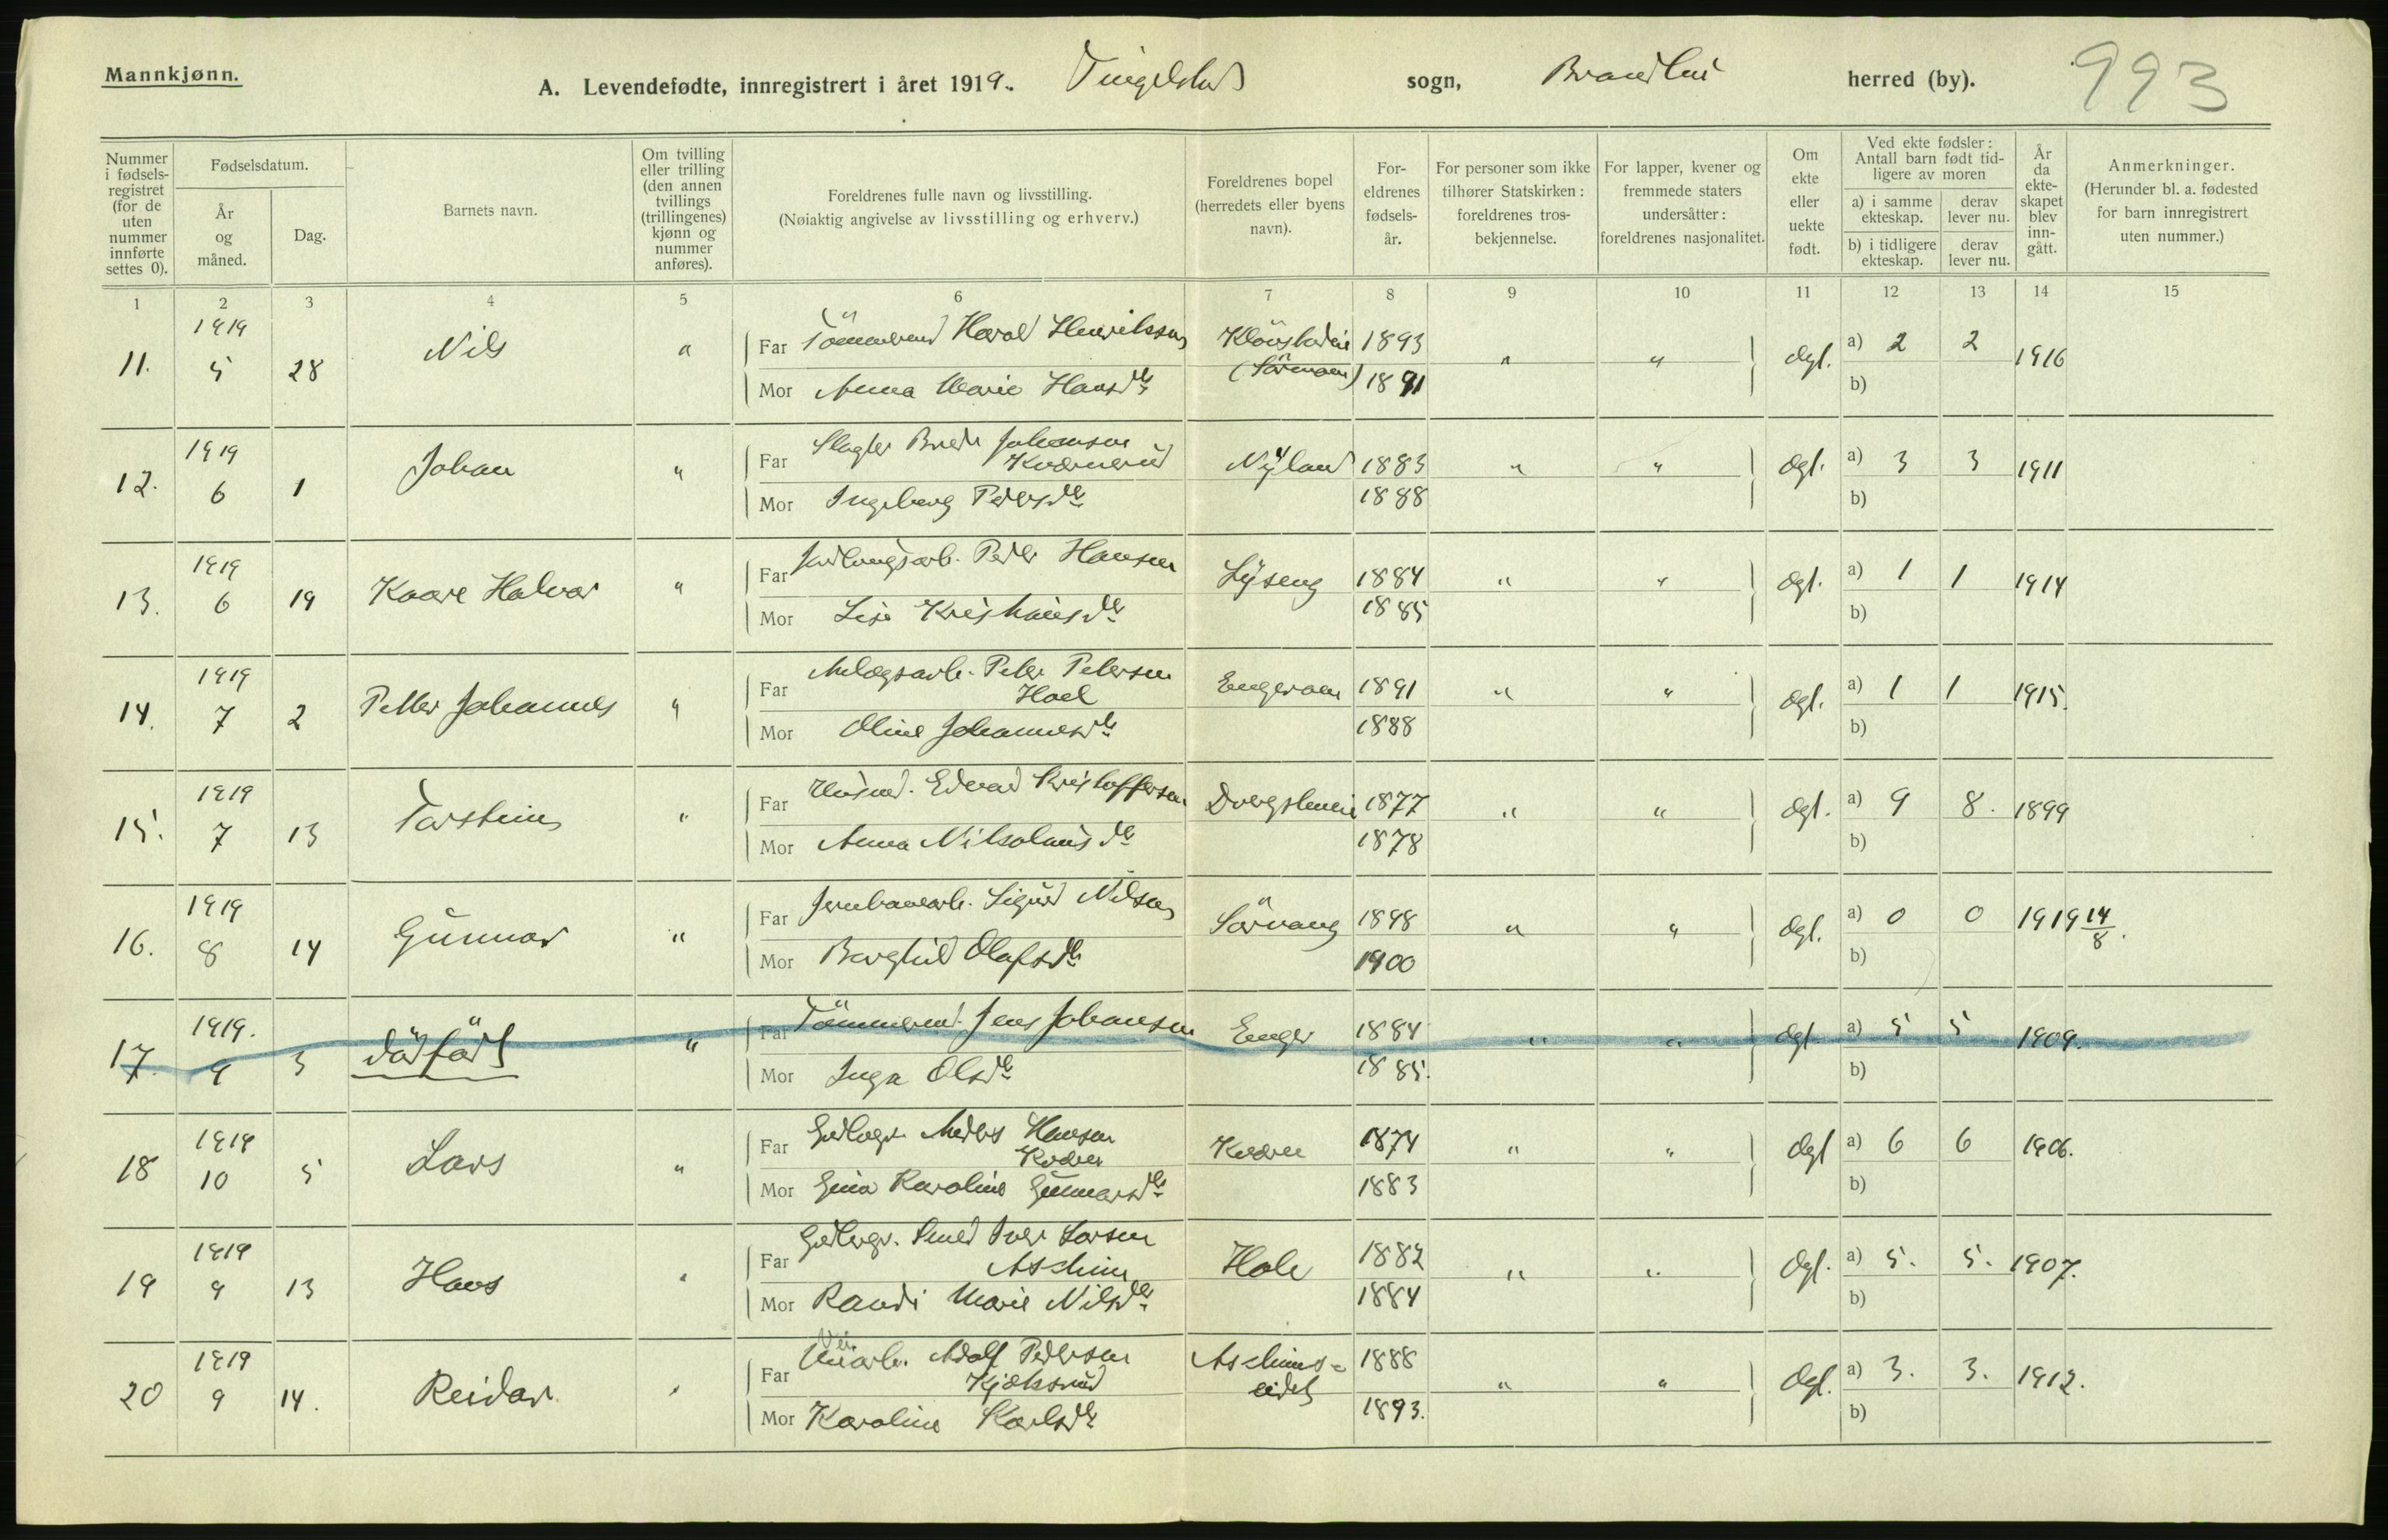 Mannkjønn.
A. Levendefødte, innregistrert i året 1919. Tingelstad sogn, Brandbu herred (by). 993
Nummer i fødselsregistret (for de uten nummer innførte settes 0).
Fødselsdatum.
År og måned.
Dag.
Barnets navn.
Om tvilling eller trilling (den annen tvillings (trillingenes) kjønn og nummer anføres).
Foreldrenes fulle navn og livsstilling.
(Nøiaktig angivelse av livsstilling og erhverv.)
Foreldrenes bopel (herredets eller byens navn).
Foreldrenes fødselsår.
For personer som ikke tilhører Statskirken: foreldrenes trosbekjennelse.
For lapper, kvener og fremmede staters undersåtter: foreldrenes nasjonalitet.
Om ekte eller uekte født.
Ved ekte fødsler: Antall barn født tidligere av moren
a) i samme ekteskap. derav lever nu.
b) i tidligere ekteskap. derav lever nu.
År da ekteskapet blev inngått.
Anmerkninger.
(Herunder bl. a. fødested for barn innregistrert uten nummer.)
1 2 3 4 5 6 7 8 9 10 11 12 13 14 15
11. 1919 5 28 Nils " Far Tömmermd Harald Henriksson 1893 " " Ogt. a) 2 2 1916
Mor Anna Marie Hansdtr (Sörmoen) 1891 b)
12. 1919 6 1 Johan " Far Slagter Brede Johansen Kværnerud Nyland 1883 " " Ogt. a) 3 3 1911
Mor Ingeborg Pedersdtr 1888 b)
13. 1919 6 19 Kaare Halvor " Far Peder Hansen Lyseng 1884 " " Ogt. a) 1 1 1914
Mor Lise Kristiansdtr 1885 b)
14. 1919 7 2 Petter Johannes " Far Anlægsarb. Peter Petersen Hoel Engeroen 1891 " " Ogt. a) 1 1 1915.
Mor Oline Johannesdtr 1888 b)
15. 1919 7 13 Torstein " Far Husmd. Edvard Kristoffersen 1877 " " Ogt. a) 9 8. 1899
Mor Anna Nikolaisdtr 1878 b)
16. 1919 8 14 Gunnar " Far Jernbanearb. Sigurd Nilsen Sörvang 1898 " " Ogt. a) 0 0 1919 14/8.
Mor Borghild Olafsdtr 1900 b)
17. 1919. 9 3 dödfödt " Far Tömmermd. Jens Johansen Enger 1884 " " Ogt. a) 5 5 1909.
Mor Inga Olsdtr 1885. b)
18 1919 10 5 Lars " Far Gdbrgr. Anders Hansen Kværn Kværn 1874 " " Ogt a) 6 6 1906.
Mor Gina Karoline Gunnarsdtr 1883 b)
19 1919 9 13 Hans " Far Gdbrgr. Smed Iver Larsen Aschim Hole 1882 " " Ogt. a) 5. 5. 1907.
Mor Randi Marie Nilsdtr 1884 b)
20 1919 9 14. Reidar " Far Veiarb. Adolf Pedersen Aschimseidet 1888 " " Ogt. a) 3. 3. 1912.
Mor Karoline Karlsdtr 1893. b)